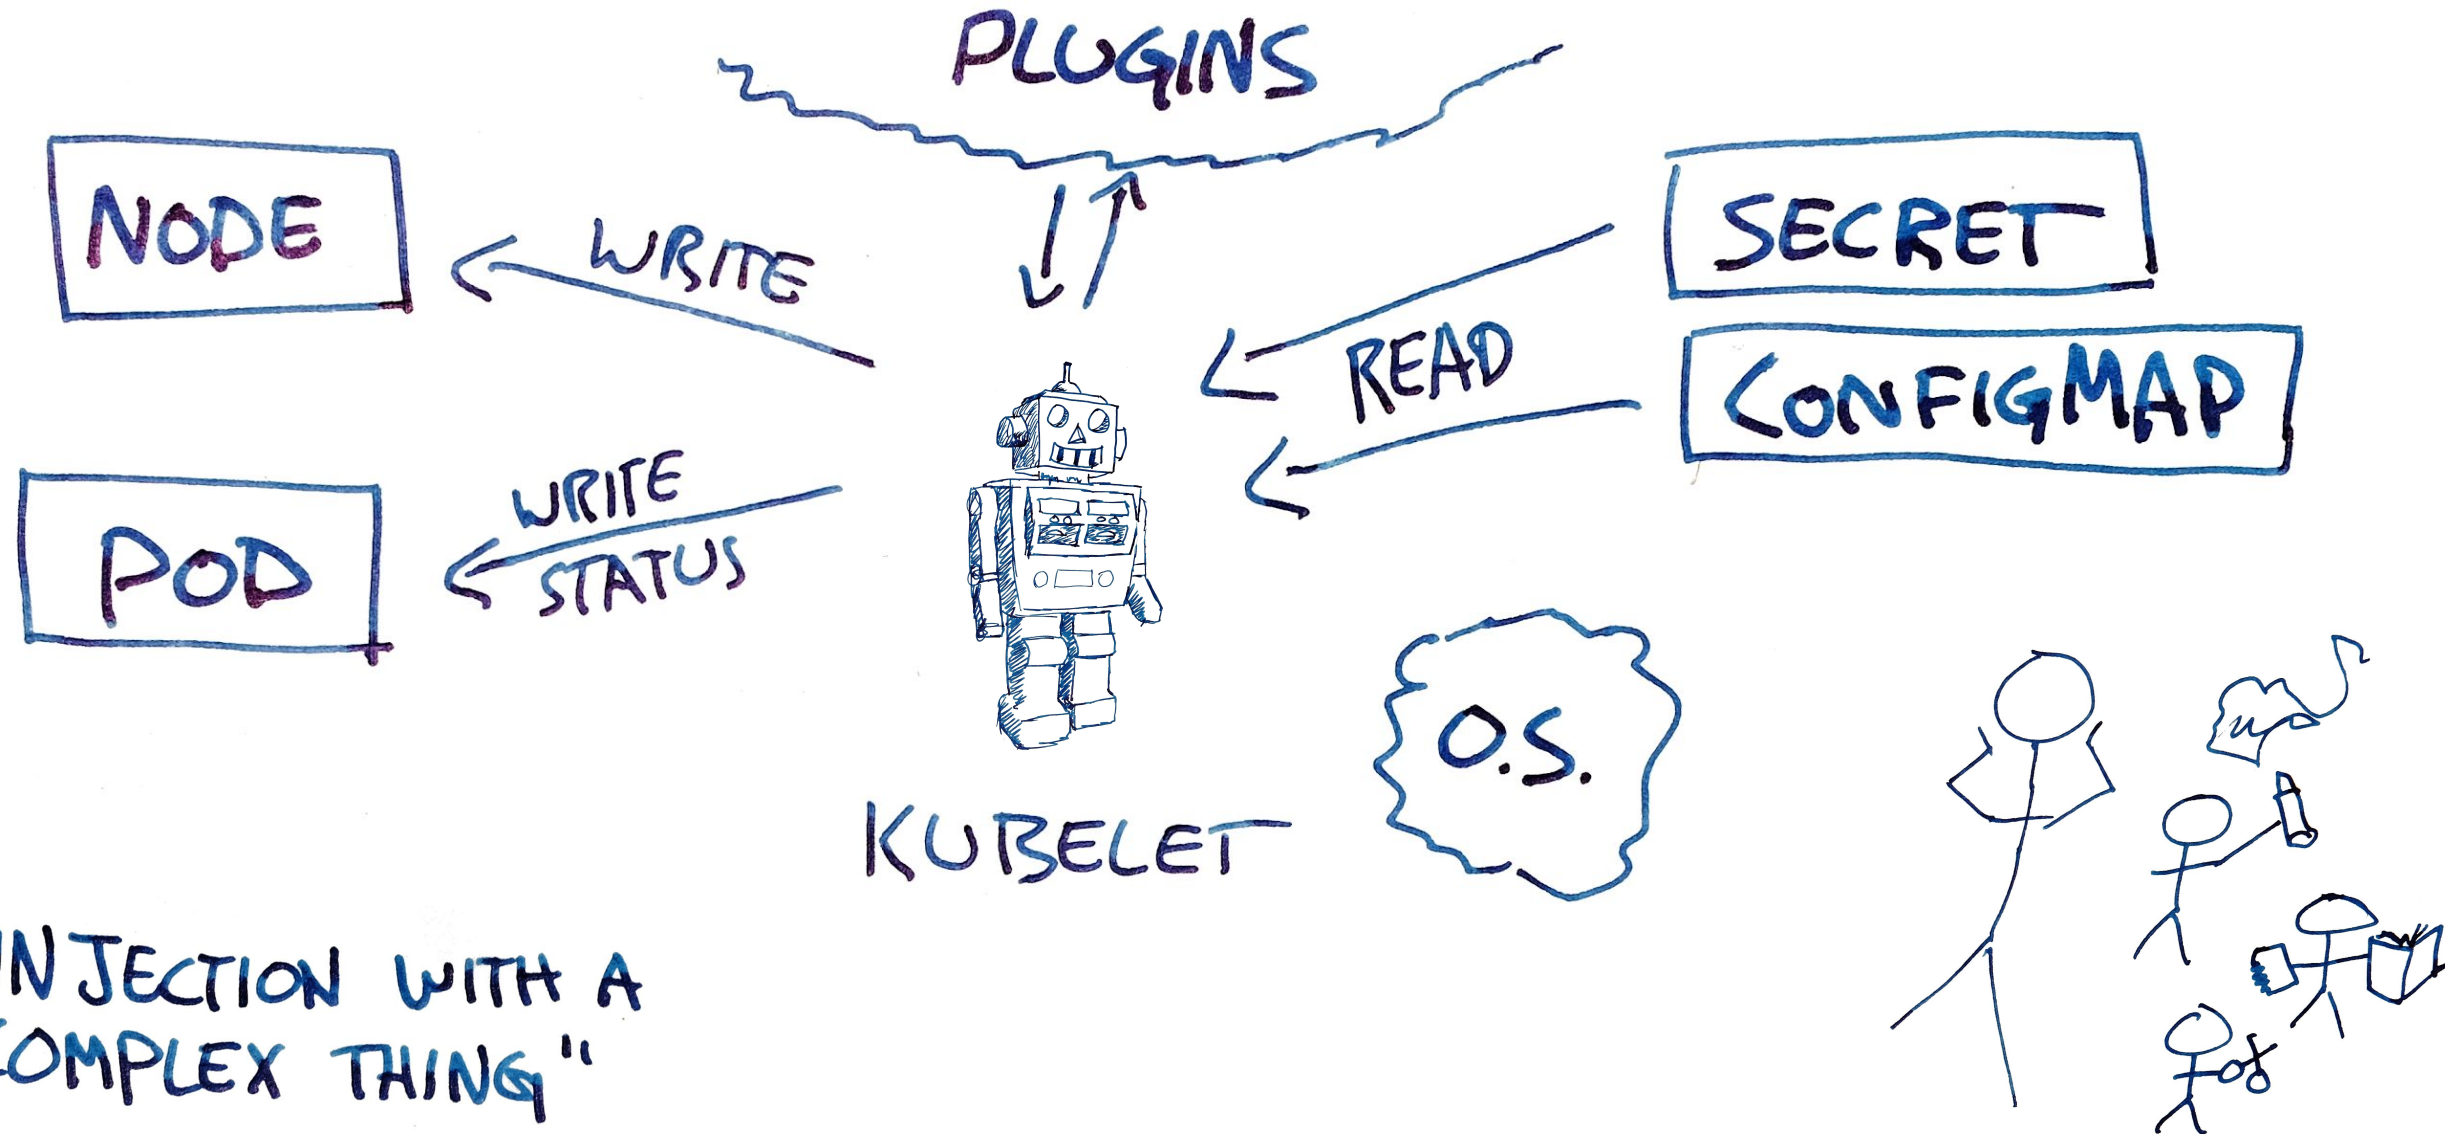 PLUGINS
NODE
WRITE
SECRET
READ
CONFIGMAP
WRITE
STATUS
POD
O.S.
KUBELET
INJECTION WITH A
COMPLEX THING"